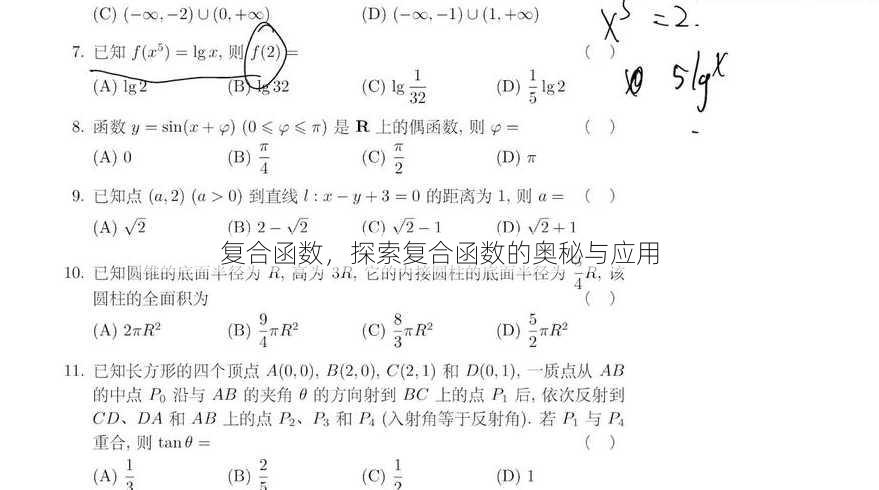 (C) (−∞, −2) ∪ (0, +∞) (D) (−∞, −1) ∪ (1, +∞)
x⁵ = 2.
7. 已知 f(x⁵) = lg x, 则 f(2) = ( )
(A) lg 2 (B) lg 32 (C) lg 1/32 (D) 1/5 lg 2
5lgx
8. 函数 y = sin(x + φ) (0 ⩽ φ ⩽ π) 是 R 上的偶函数, 则 φ = ( )
(A) 0 (B) π/4 (C) π/2 (D) π
9. 已知点 (a, 2) (a > 0) 到直线 l : x − y + 3 = 0 的距离为 1, 则 a = ( )
(A) √2 (B) 2 − √2 (C) √2 − 1 (D) √2 + 1
复合函数，探索复合函数的奥秘与应用
10. 已知圆锥的底面半径为 R, 高为 3R, 它的内接圆柱的底面半径为 3/4 R, 该
圆柱的全面积为 ( )
(A) 2πR² (B) 9/4 πR² (C) 8/3 πR² (D) 5/2 πR²
11. 已知长方形的四个顶点 A(0, 0), B(2, 0), C(2, 1) 和 D(0, 1), 一质点从 AB
的中点 P₀ 沿与 AB 的夹角 θ 的方向射到 BC 上的点 P₁ 后, 依次反射到
CD、DA 和 AB 上的点 P₂、P₃ 和 P₄ (入射角等于反射角). 若 P₁ 与 P₄
重合, 则 tan θ = ( )
(A) 1/3 (B) 2/5 (C) 1/2 (D) 1